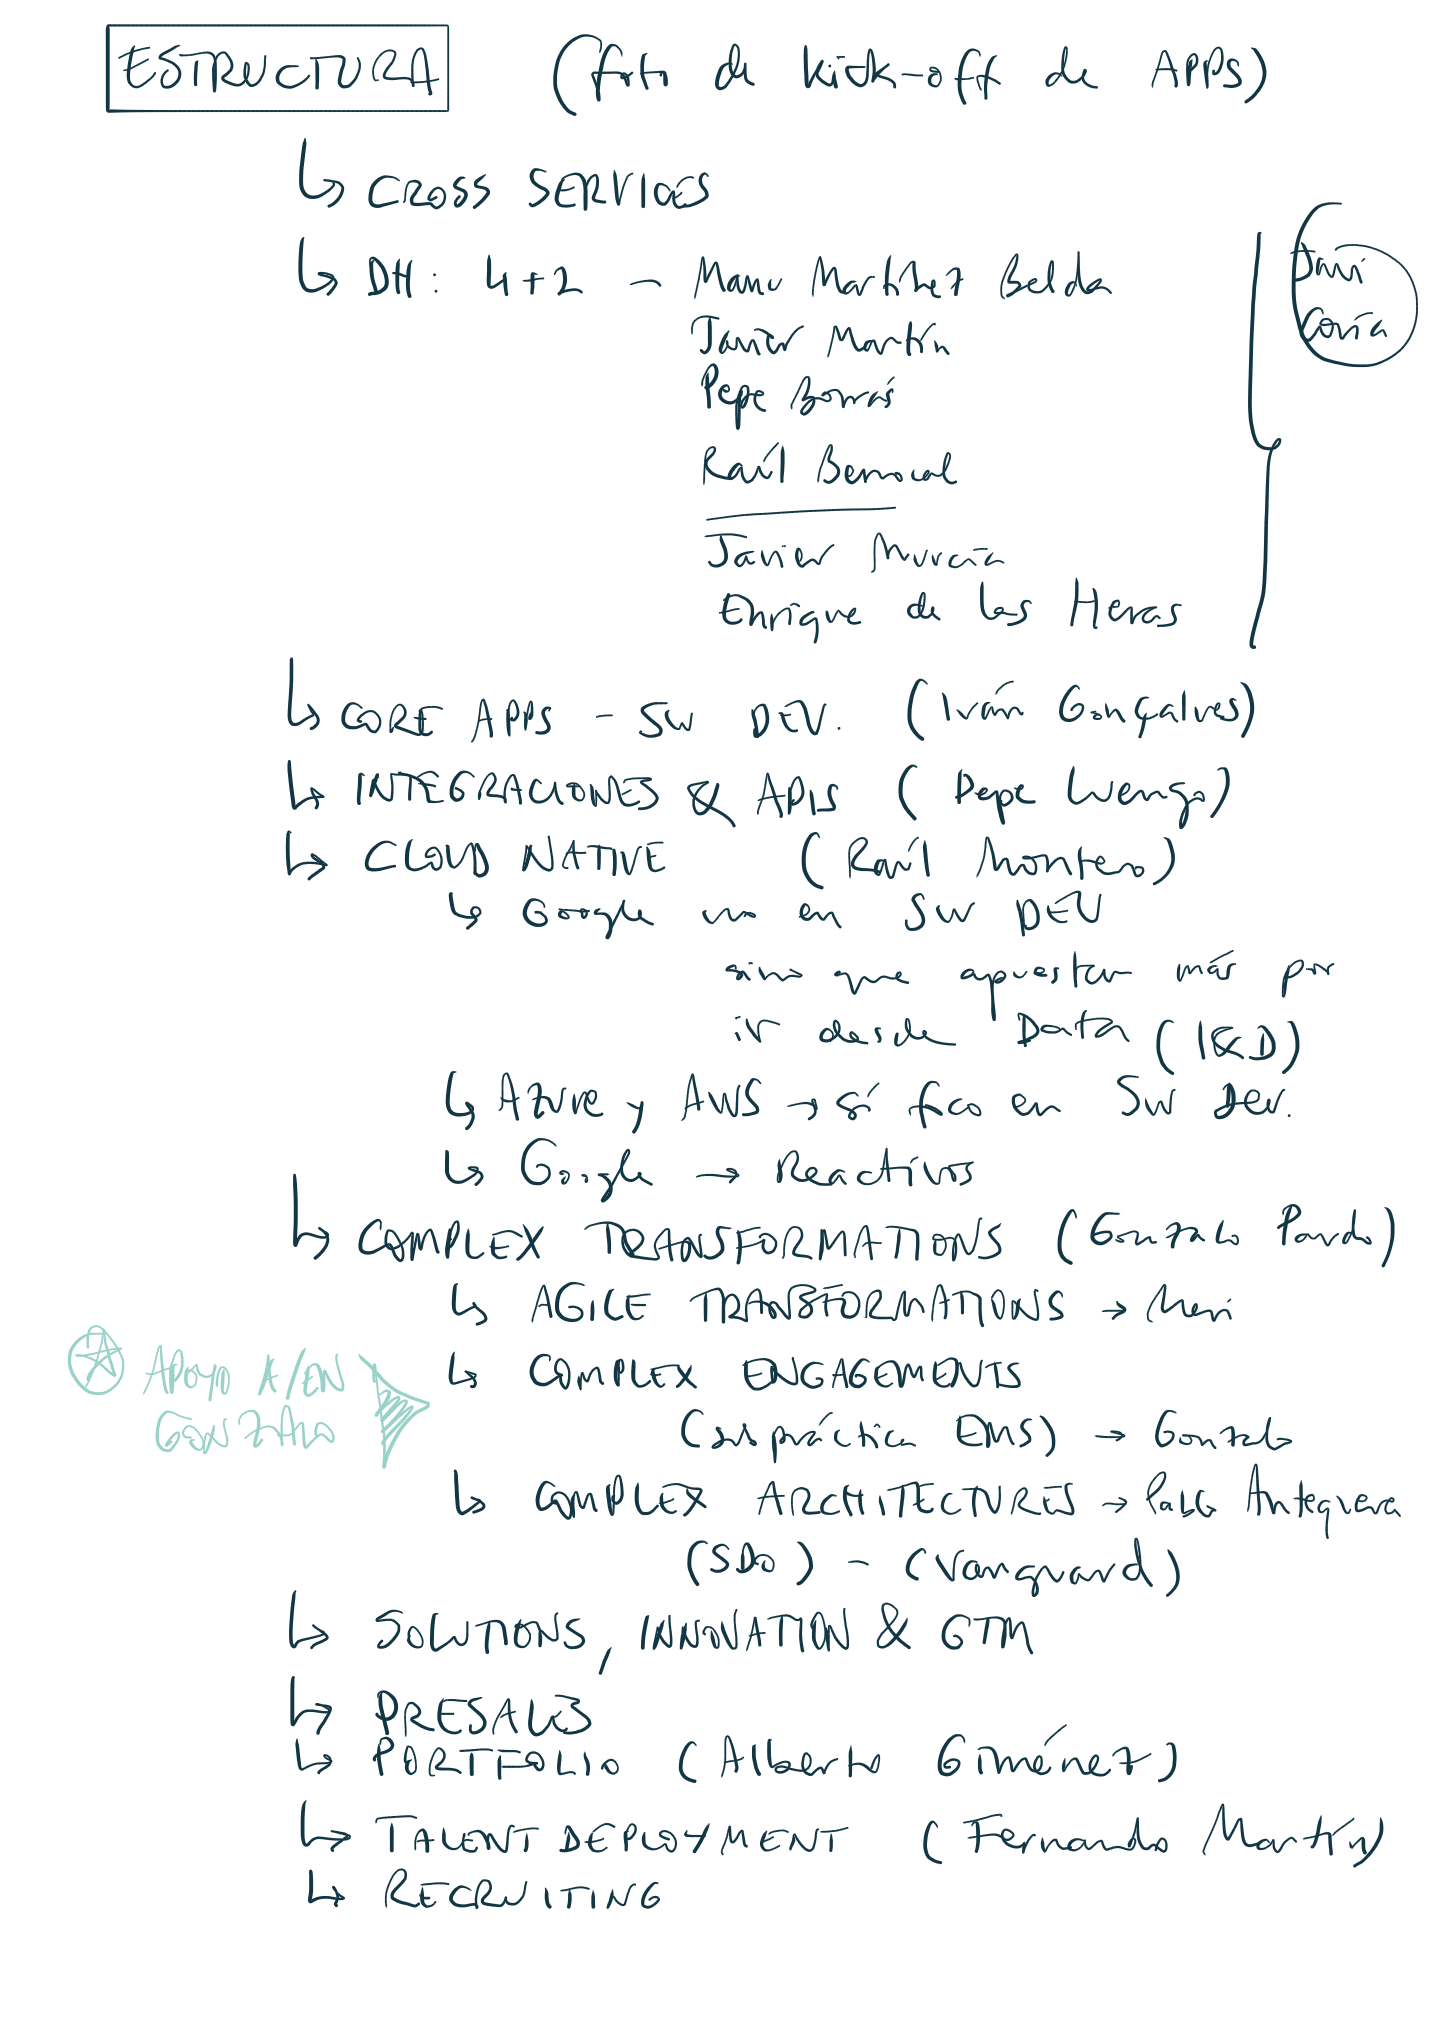 ESTRUCTURA (foto de kick-off de APPS)
↳ CROSS SERVICES
↳ DH: 4+2 - Manu Martínez Belda
Javier Martín
Pepe Borrás
Raúl Berrocal
Javier Murcia
Enrique de las Heras
Dani
Coria
↳ CORE APPS - SW DEV. (Iván Gonçalves)
↳ INTEGRACIONES & APIS (Pepe Luengo)
↳ CLOUD NATIVE (Raúl Montero)
↳ Google no en SW DEV
sino que apuestan más por
ir desde Data (I&D)
↳ Azure y AWS → sí foco en SW Dev.
↳ Google → Reactivos
↳ COMPLEX TRANSFORMATIONS (Gonzalo Pardo)
↳ AGILE TRANSFORMATIONS → Meri
APOYO A/EN
GONZALO
↳ COMPLEX ENGAGEMENTS
(sub práctica EMS) → Gonzalo
↳ COMPLEX ARCHITECTURES → Pablo Antequera
(SDO) - (Vanguard)
↳ SOLUTIONS, INNOVATION & GTM
↳ PRESALES
↳ PORTFOLIO (Alberto Giménez)
↳ TALENT DEPLOYMENT (Fernando Martín)
↳ RECRUITING